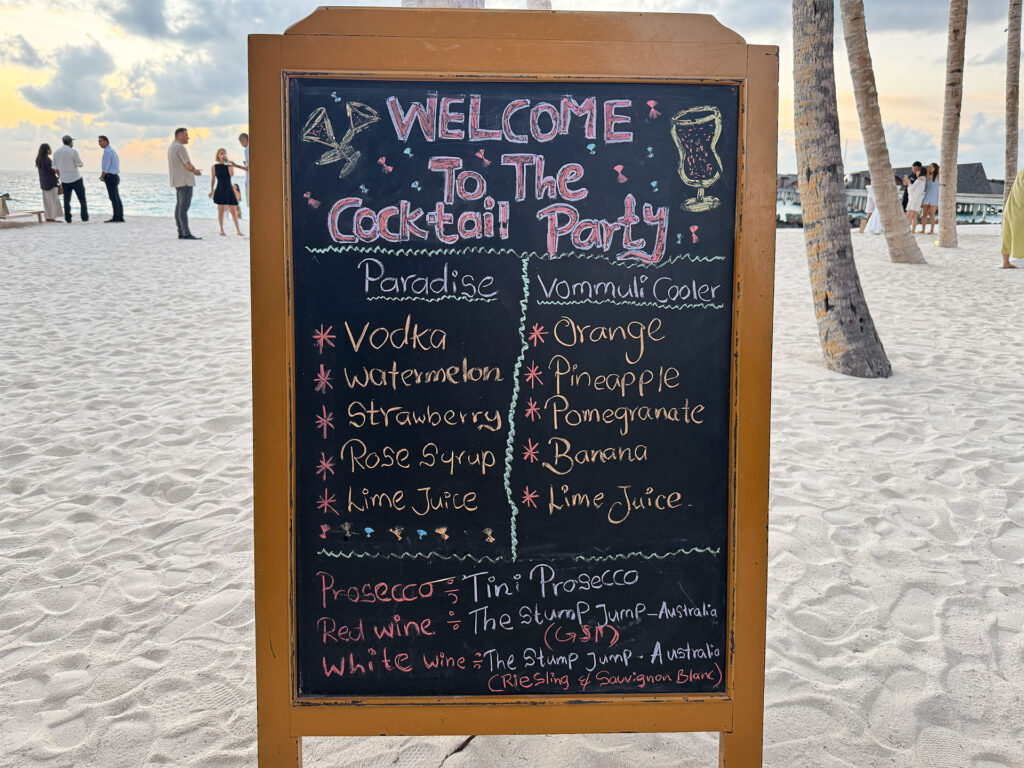 WELCOME
To The
Cocktail Party
Paradise
Vodka
Watermelon
Strawberry
Rose Syrup
Lime Juice
Vommuli Cooler
Orange
Pineapple
Pomegranate
Banana
Lime Juice.
Prosecco ÷ Tini Prosecco
Red wine ÷ The Stump Jump - Australia
White wine ÷ The Stump Jump - Australia
(Riesling & Sauvignon Blanc)